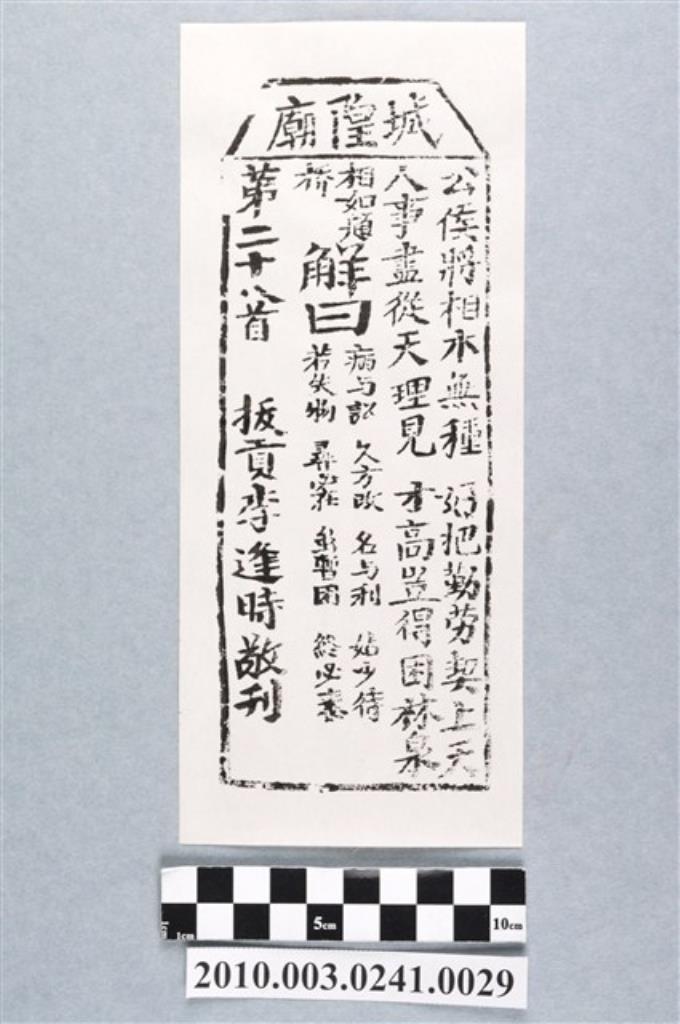 城隍廟
公侯將相本無種 好把勤勞契上天
人事盡從天理見 才高豈得困林泉
相如題橋
解曰
病与訟 久方改 名与利 姑少待
若失物 尋窂 雖暫困 終必泰
第二十八首 拔貢李逢時敬刊
1cm 5cm 10cm
2010.003.0241.0029